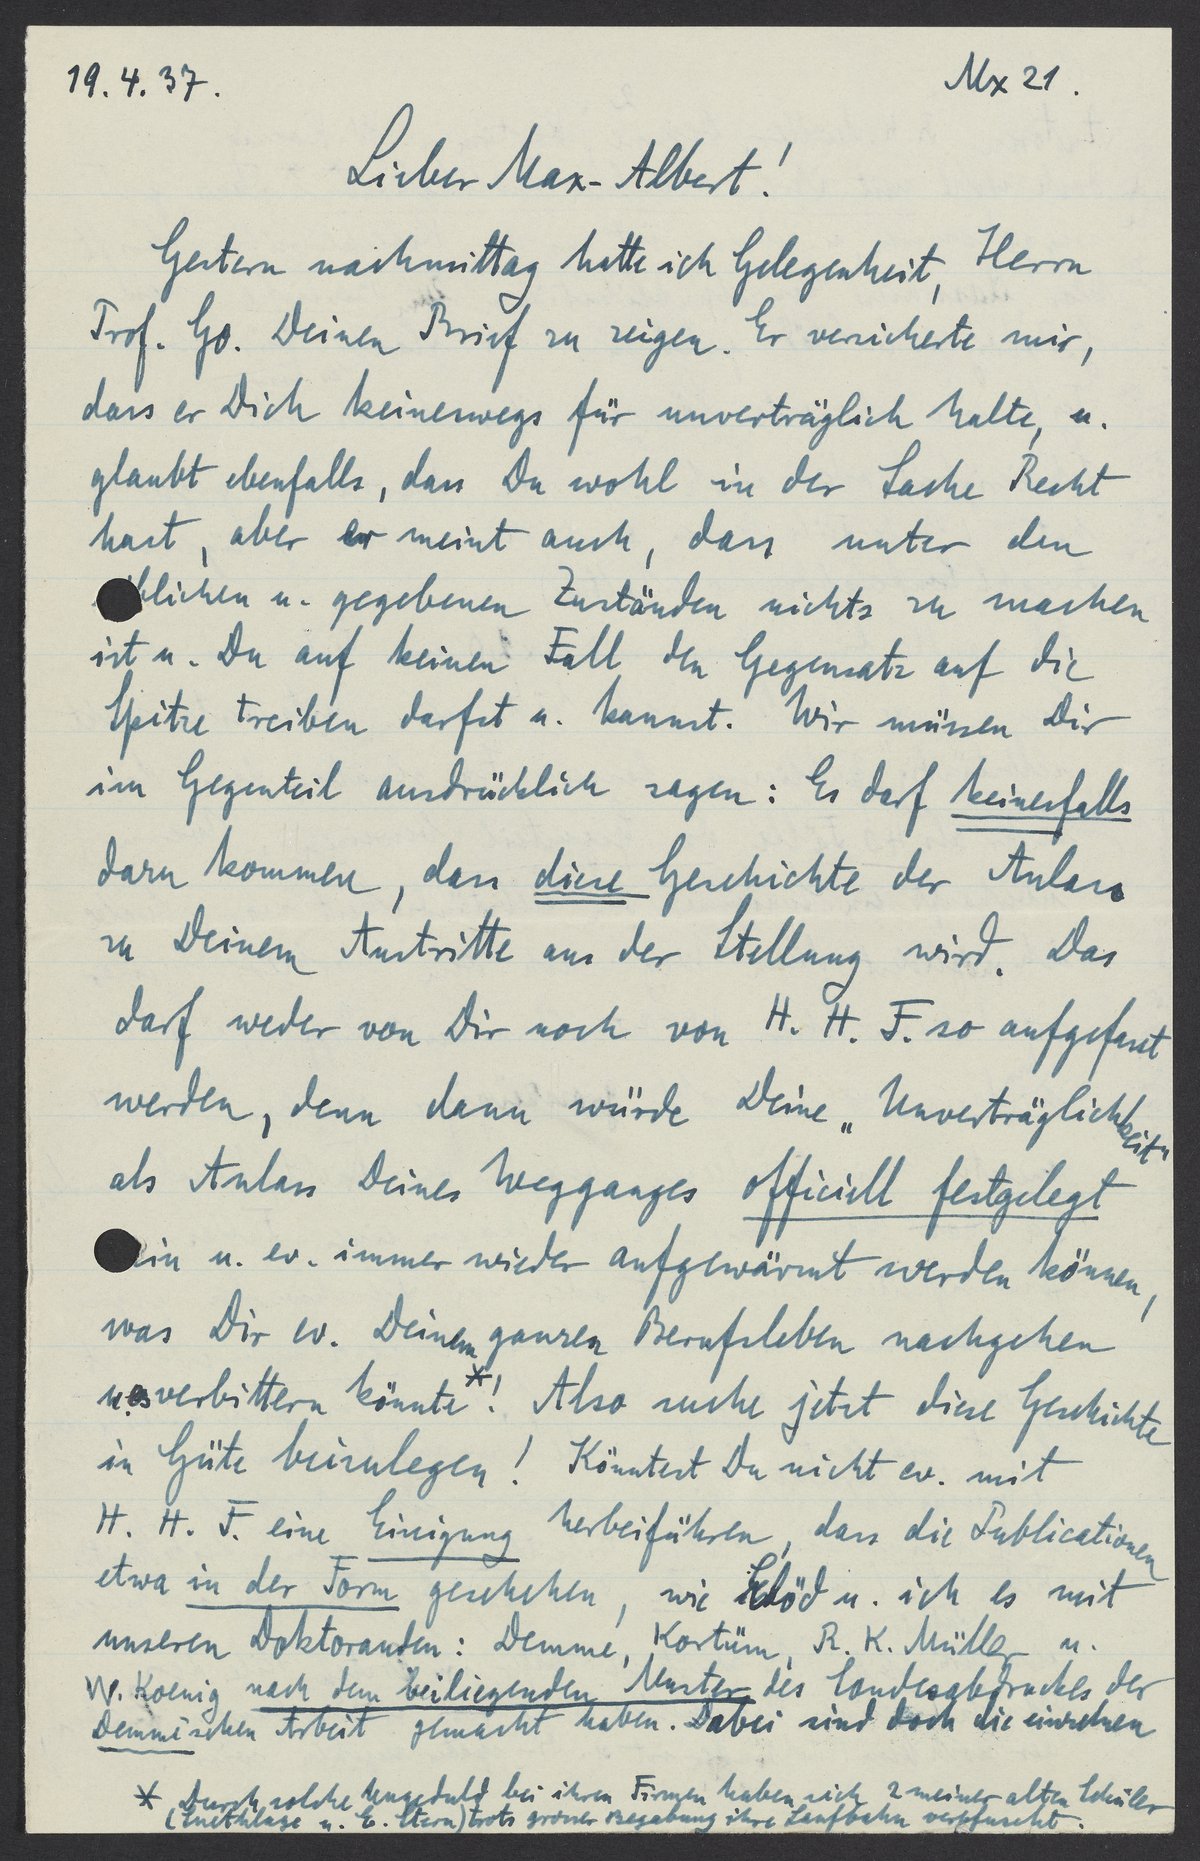 19. 4. 37.
Mx 21.
Lieber Max-Albert!
Gestern nachmittag hatte ich Gelegenheit, Herrn
Prof. Go. Deinen Brief zu zeigen. Er versicherte mir,
dass er Dich keineswegs für unverträglich halte, u.
glaubt ebenfalls, dass Du wohl in der Sache Recht
hast, aber er meint auch, dass unter den
üblichen u. gegebenen Zuständen nichts zu machen
ist u. Du auf keinen Fall den Gegensatz auf die
Spitze treiben darfst u. kannst. Wir müssen Dir
im Gegenteil ausdrücklich sagen: Es darf keinesfalls
dazu kommen, dass diese Geschichte der Anlass
zu Deinem Austritte aus der Stellung wird. Das
darf weder von Dir noch von H. H. F. so aufgefasst
werden, denn dann würde Deine „Unverträglichkeit"
als Anlass Deines Wegganges officiell festgelegt
sein u. ev. immer wieder aufgewärmt werden können,
was Dir ev. Deinem ganzen Berufsleben nachgehen
u. es verbittern könnte*! Also suche jetzt diese Geschichte
in Güte beizulegen! Könntest Du nicht ev. mit
H. H. F. eine Einigung herbeiführen, dass die Publicationen
etwa in der Form geschehen, wie u. ich es mit
unseren Doktoranden: Demme, Kortüm, R. K. Müller u.
W. Koenig nach dem beiliegenden Muster des Sonderabdruckes der
Demmeschen Arbeit gemacht haben. Dabei sind doch die einzelnen
* Durch solche Ungeduld bei ihren Firmen haben sich 2 meiner alten Schüler
( u. E. Stern) trotz grosser Begabung ihre Laufbahn verpfuscht.